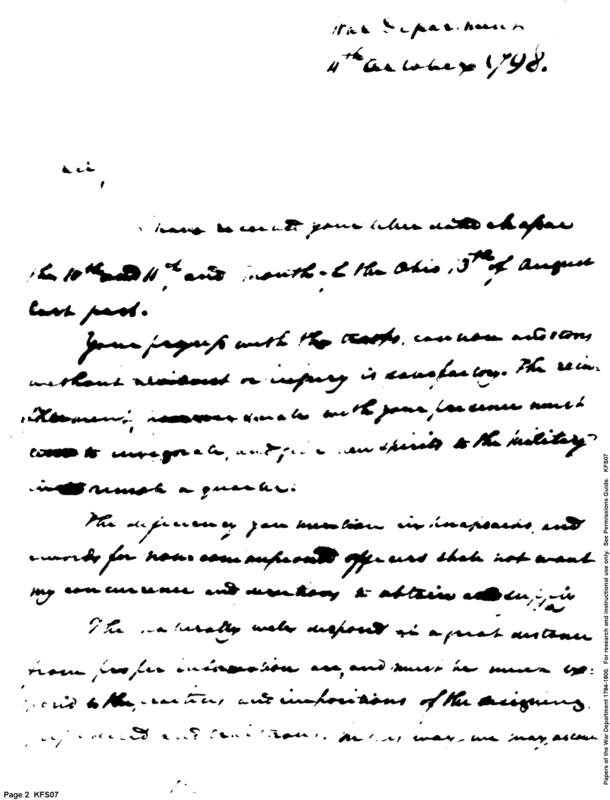 War Department
4th October 1798.
Sir,
have received your letter dated
the 10th and 11th and mouth of the Ohio 13th of August
last past.
Your progress with the troops, cannon and stores
without accident or injury is satisfactory. The rein-
with your presence must
to invigorate, and give new spirits to the military
in remote a quarter.
The deficiency you mention in knapsacks, and
swords for non commissioned officers shall not want
my concurrence and directions to obtain a supply
The naturally well disposed at a great distance
from proper information are, and must be much ex-
posed to the practices and impositions of the designing,
and we may
Page 2 KFS07
Papers of the War Department 1784-1800. For research and instructional use only. See Permissions Guide. KFS07